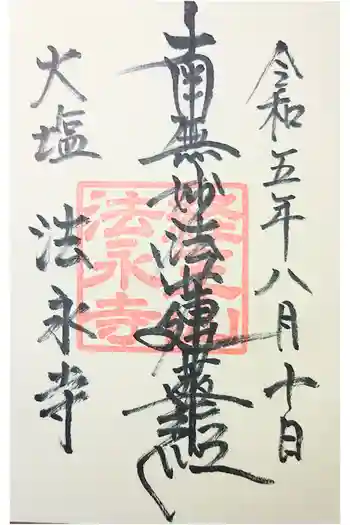 令和五年八月十日
南無妙法蓮華経
大塩 法永寺
法永寺